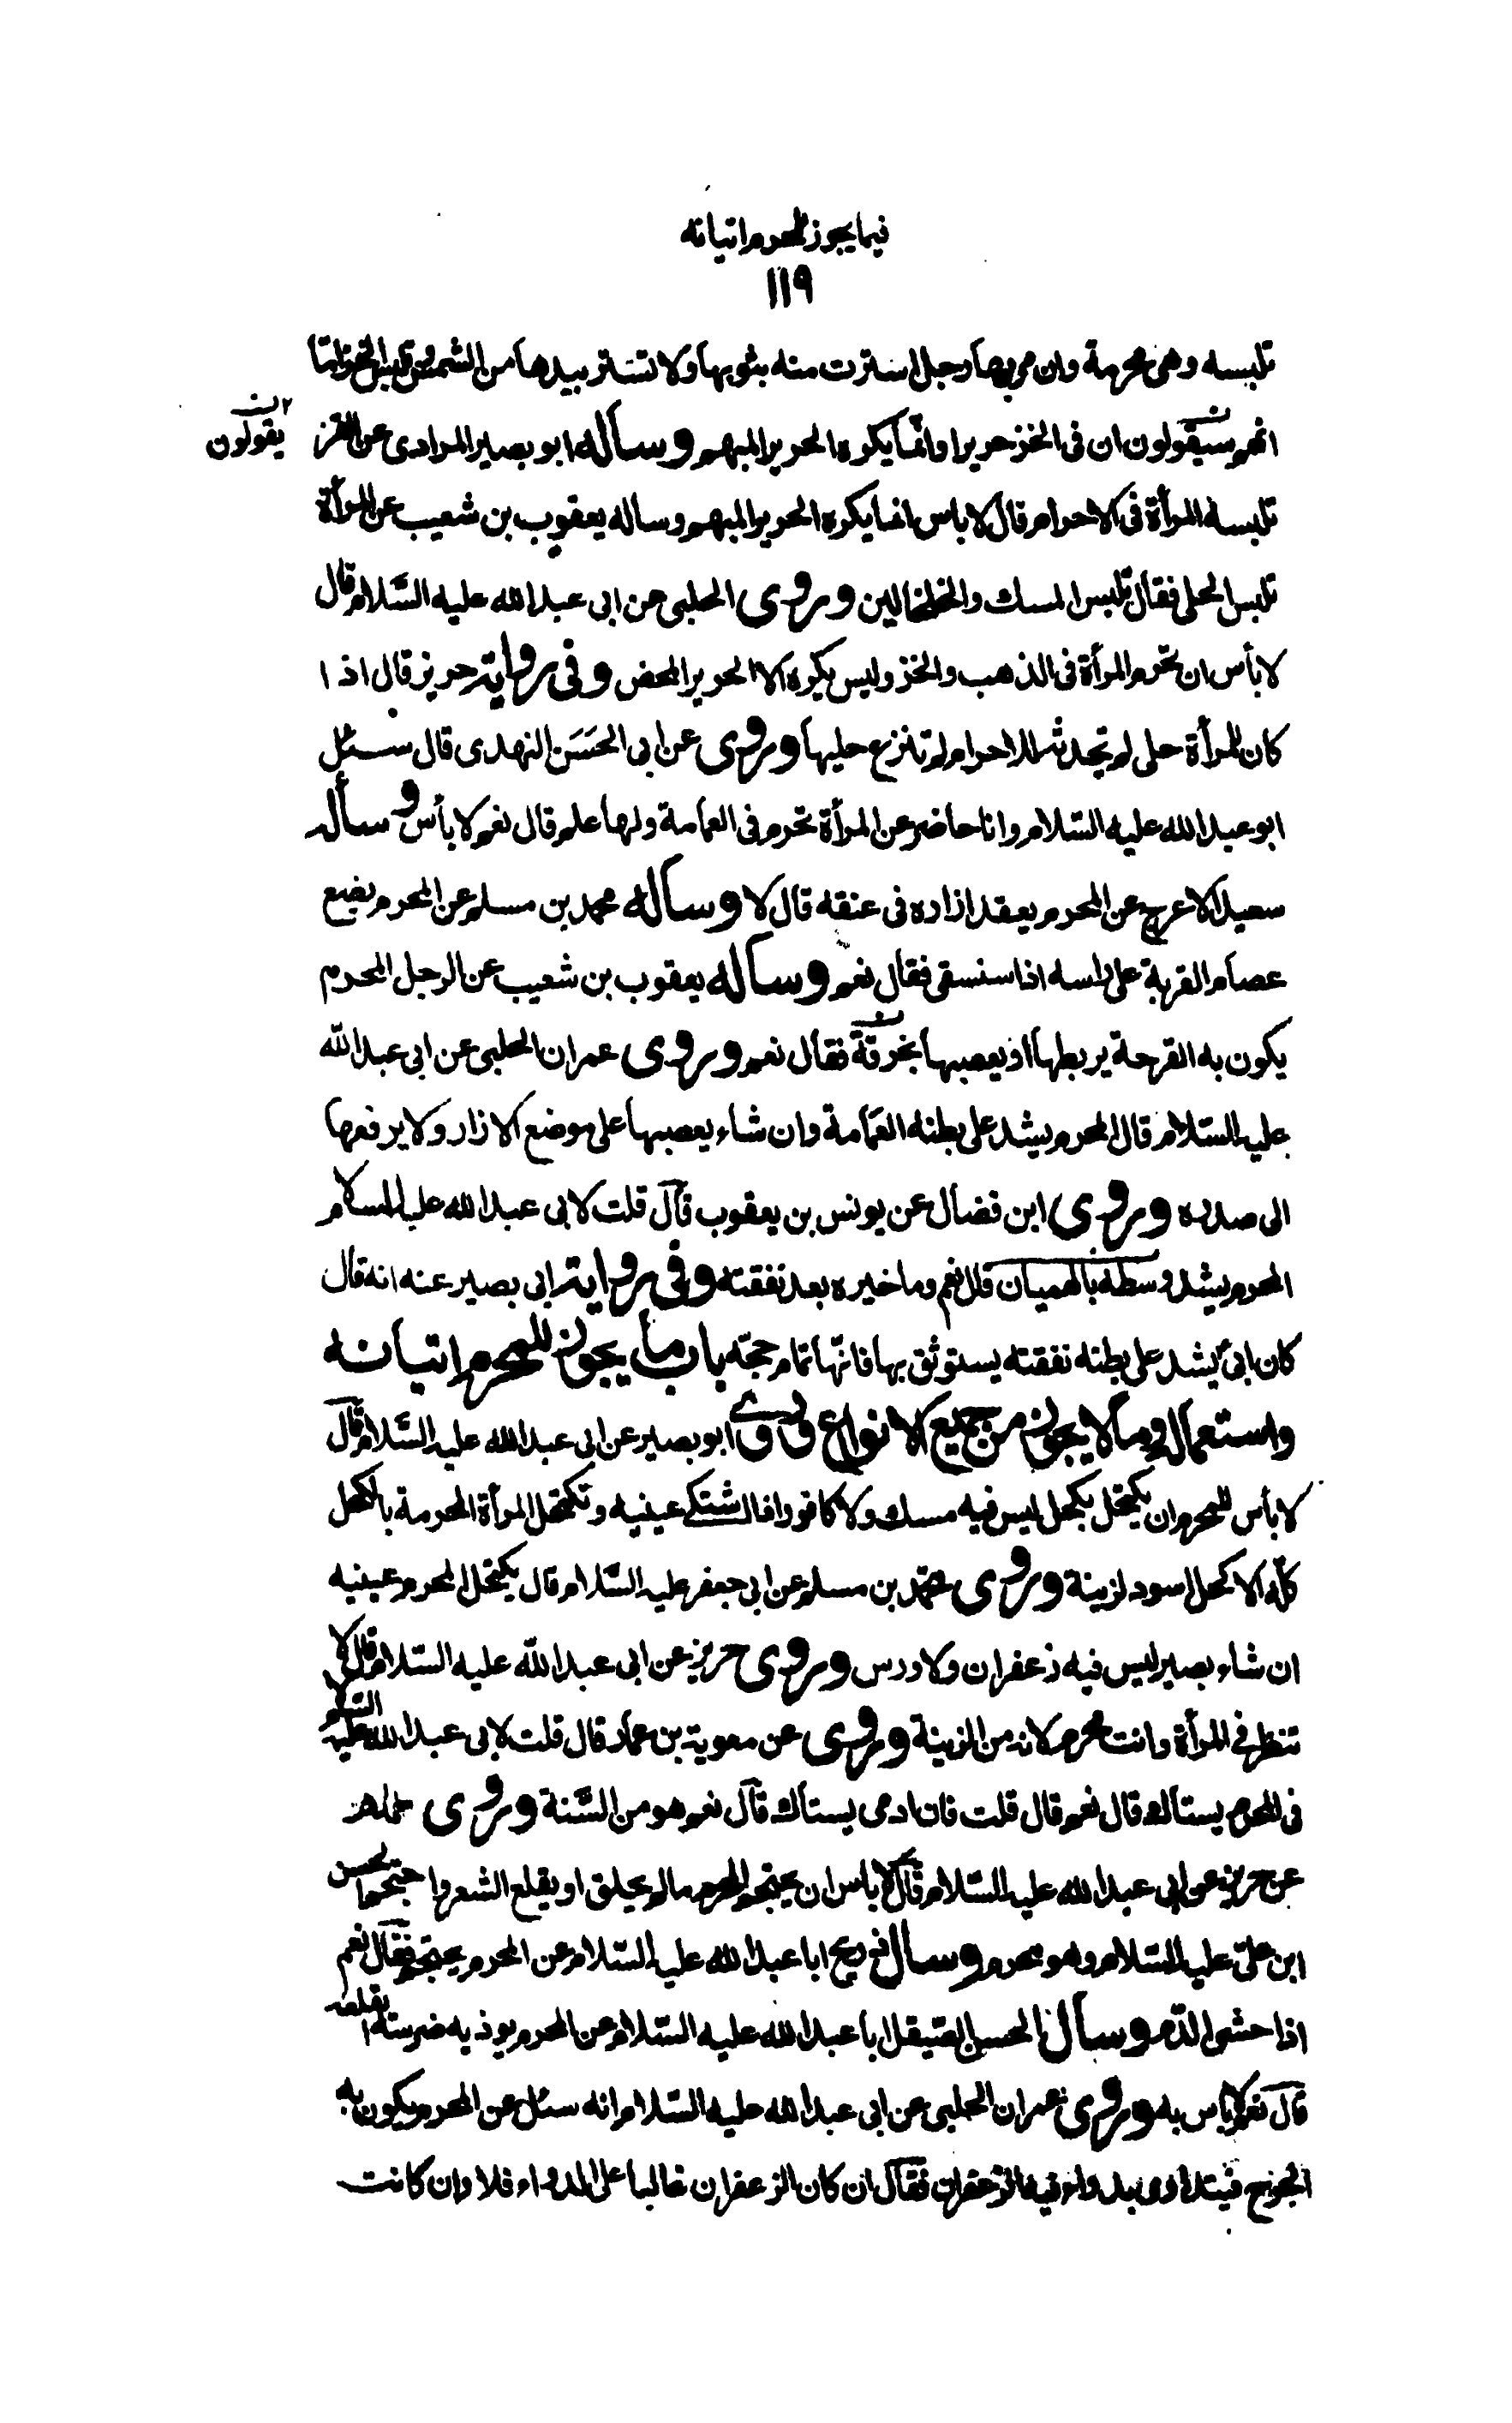 فيما يجوز للمحرم اتيانه
١١٩
تلبسه وهى محرمة وان مر بها رجل استترت منه بثوبها ولا تستتر بيدها من الشمس وتلبس الخز اما
انهم سيقولون ان فى الخز حريرا وانما يكره الحرير المبهم وساله ابو بصير المرادى عن القز
يقولون
تلبسه المرأة فى الاحرام قال لا باس انما يكره الحرير المبهم وساله يعقوب بن شعيب عن المرأة
تلبس الحلى فقال تلبس المسك والخلخالين وروى الحلبى عن ابى عبد الله عليه السلام قال
لا بأس ان تحرم المرأة فى الذهب والخز وليس يكره الا الحرير المحض وفى رواية حريز قال اذا
كان للمرأة حلى لم تحدثه للاحرام لم تنزع حليها وروى عن ابى الحسن النهدى قال سئل
ابو عبد الله عليه السلام وانا حاضر عن المرأة تحرم فى العمامة ولها علم قال نعم لا بأس وسأله
سعيد الاعرج عن المحرم يعقد ازاره فى عنقه قال لا وساله محمد بن مسلم عن المحرم يضع
عصام القربة على راسه اذا استسقى فقال نعم وساله يعقوب بن شعيب عن الرجل المحرم
يكون به القرحة يربطها او يعصبها بخرقة فقال نعم وروى عمران الحلبى عن ابى عبد الله
عليه السلام قال المحرم يشد على بطنه العمامة وان شاء يعصبها على موضع الازار ولا يرفعها
الى صدره وروى ابن فضال عن يونس بن يعقوب قال قلت لابى عبد الله عليه السلام
المحرم يشد وسطه بالهميان قال نعم وما خيره بعد نفقته وفى رواية ابى بصير عنه انه قال
كان ابى يشد على بطنه نفقته يستوثق بها فانها تمام حجته باب ما يجوز للمحرم اتيانه
واستعماله وما لا يجوز من جميع الانواع روى ابو بصير عن ابى عبد الله عليه السلام قال
لا بأس للمحرم ان يكتحل بكحل ليس فيه مسك ولا كافور اذا اشتكى عينيه وتكتحل المرأة المحرمة بالكحل
كله الا كحل اسود لزينة وروى محمد بن مسلم عن ابى جعفر عليه السلام قال يكتحل المحرم عينيه
ان شاء بصبر ليس فيه زعفران ولا ورس وروى حريز عن ابى عبد الله عليه السلام قال لا
تنظر فى المرأة وانت محرم لانه من الزينة وروى عن معوية بن عمار قال قلت لابى عبد الله عليه السلام
فى المحرم يستاك قال نعم قال قلت فان ادمى يستاك قال نعم هو من السنة وروى حماد
عن حريز عن ابى عبد الله عليه السلام قال لا باس ان يحتجم المحرم ما لم يحلق او يقلع الشعر واحتجم الحسن
ابن على عليه السلام وهو محرم وسال ذريح ابا عبد الله عليه السلام عن المحرم يحتجم فقال نعم
اذا خشى الدم وسال الحسن الصيقل ابا عبد الله عليه السلام عن المحرم يوذيه ضرسه ايقلعه
قال نعم لا باس به وروى عمران الحلبى عن ابى عبد الله عليه السلام انه سئل عن المحرم يكون به
الجرح فيتداوى بدواء فيه الزعفران فقال ان كان الزعفران غالبا على الدواء فلا وان كانت